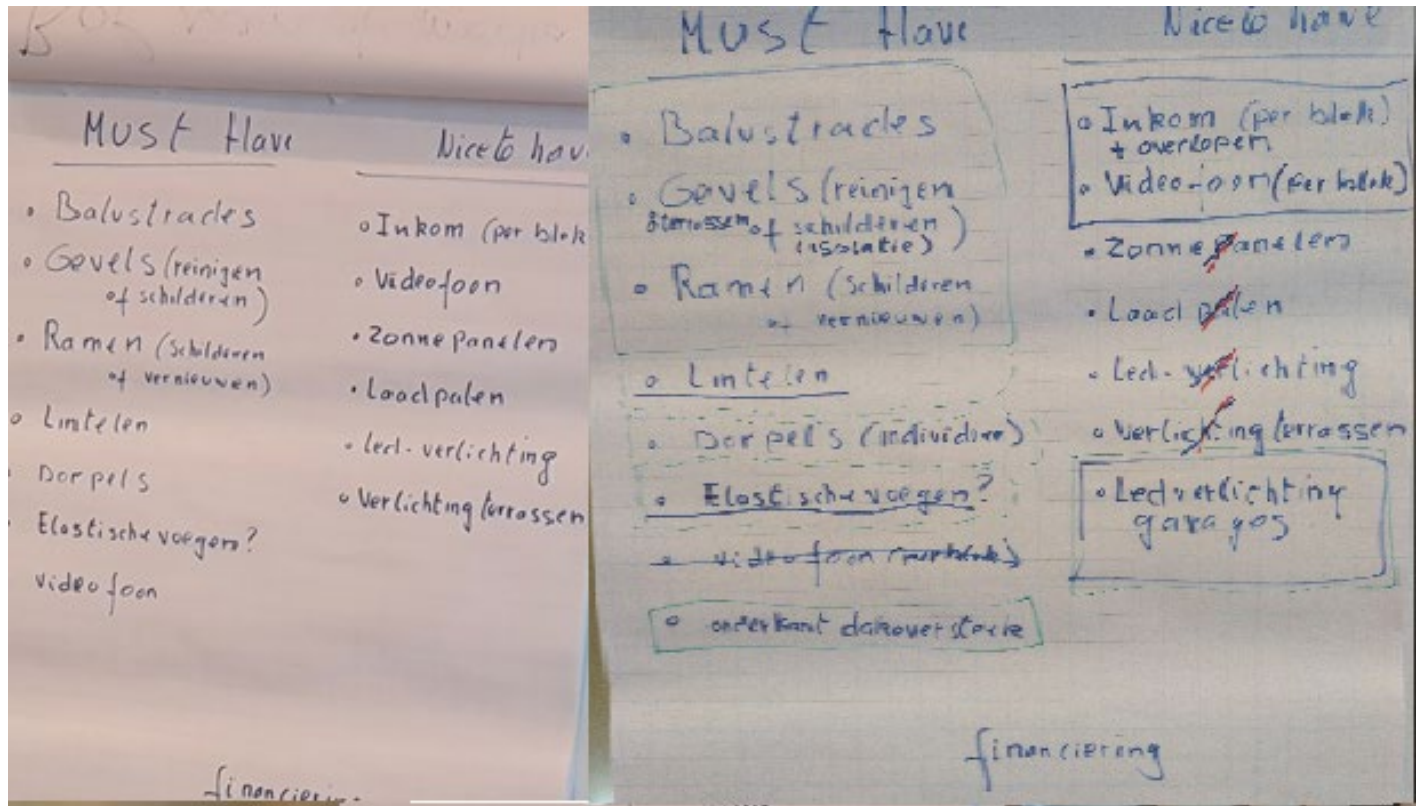 Must Have
Balustrades
Gevels (reinigen
of schilderen)
Ramen (schilderen
of vernieuwen)
Lintelen
Dorpels
Elastische voegen?
videofoon
Nice to hav
Inkom (per blok
Videofoon
Zonnepanelen
Laadpalen
led-verlichting
Verlichting terrassen
Must Have
Balustrades
Gevels (reinigen
of schilderen)
isolatie)
Ramen (schilderen
of vernieuwen)
Lintelen
Dorpels
Elastische voegen?
videofoon (per blok)
onderkant
Nice to have
Inkom (per blok)
+ overlopen
Videofoon (per blok)
Zonnepanelen
Laadpalen
Led-verlichting
Verlichting terrassen
Ledverlichting
garages
financiering